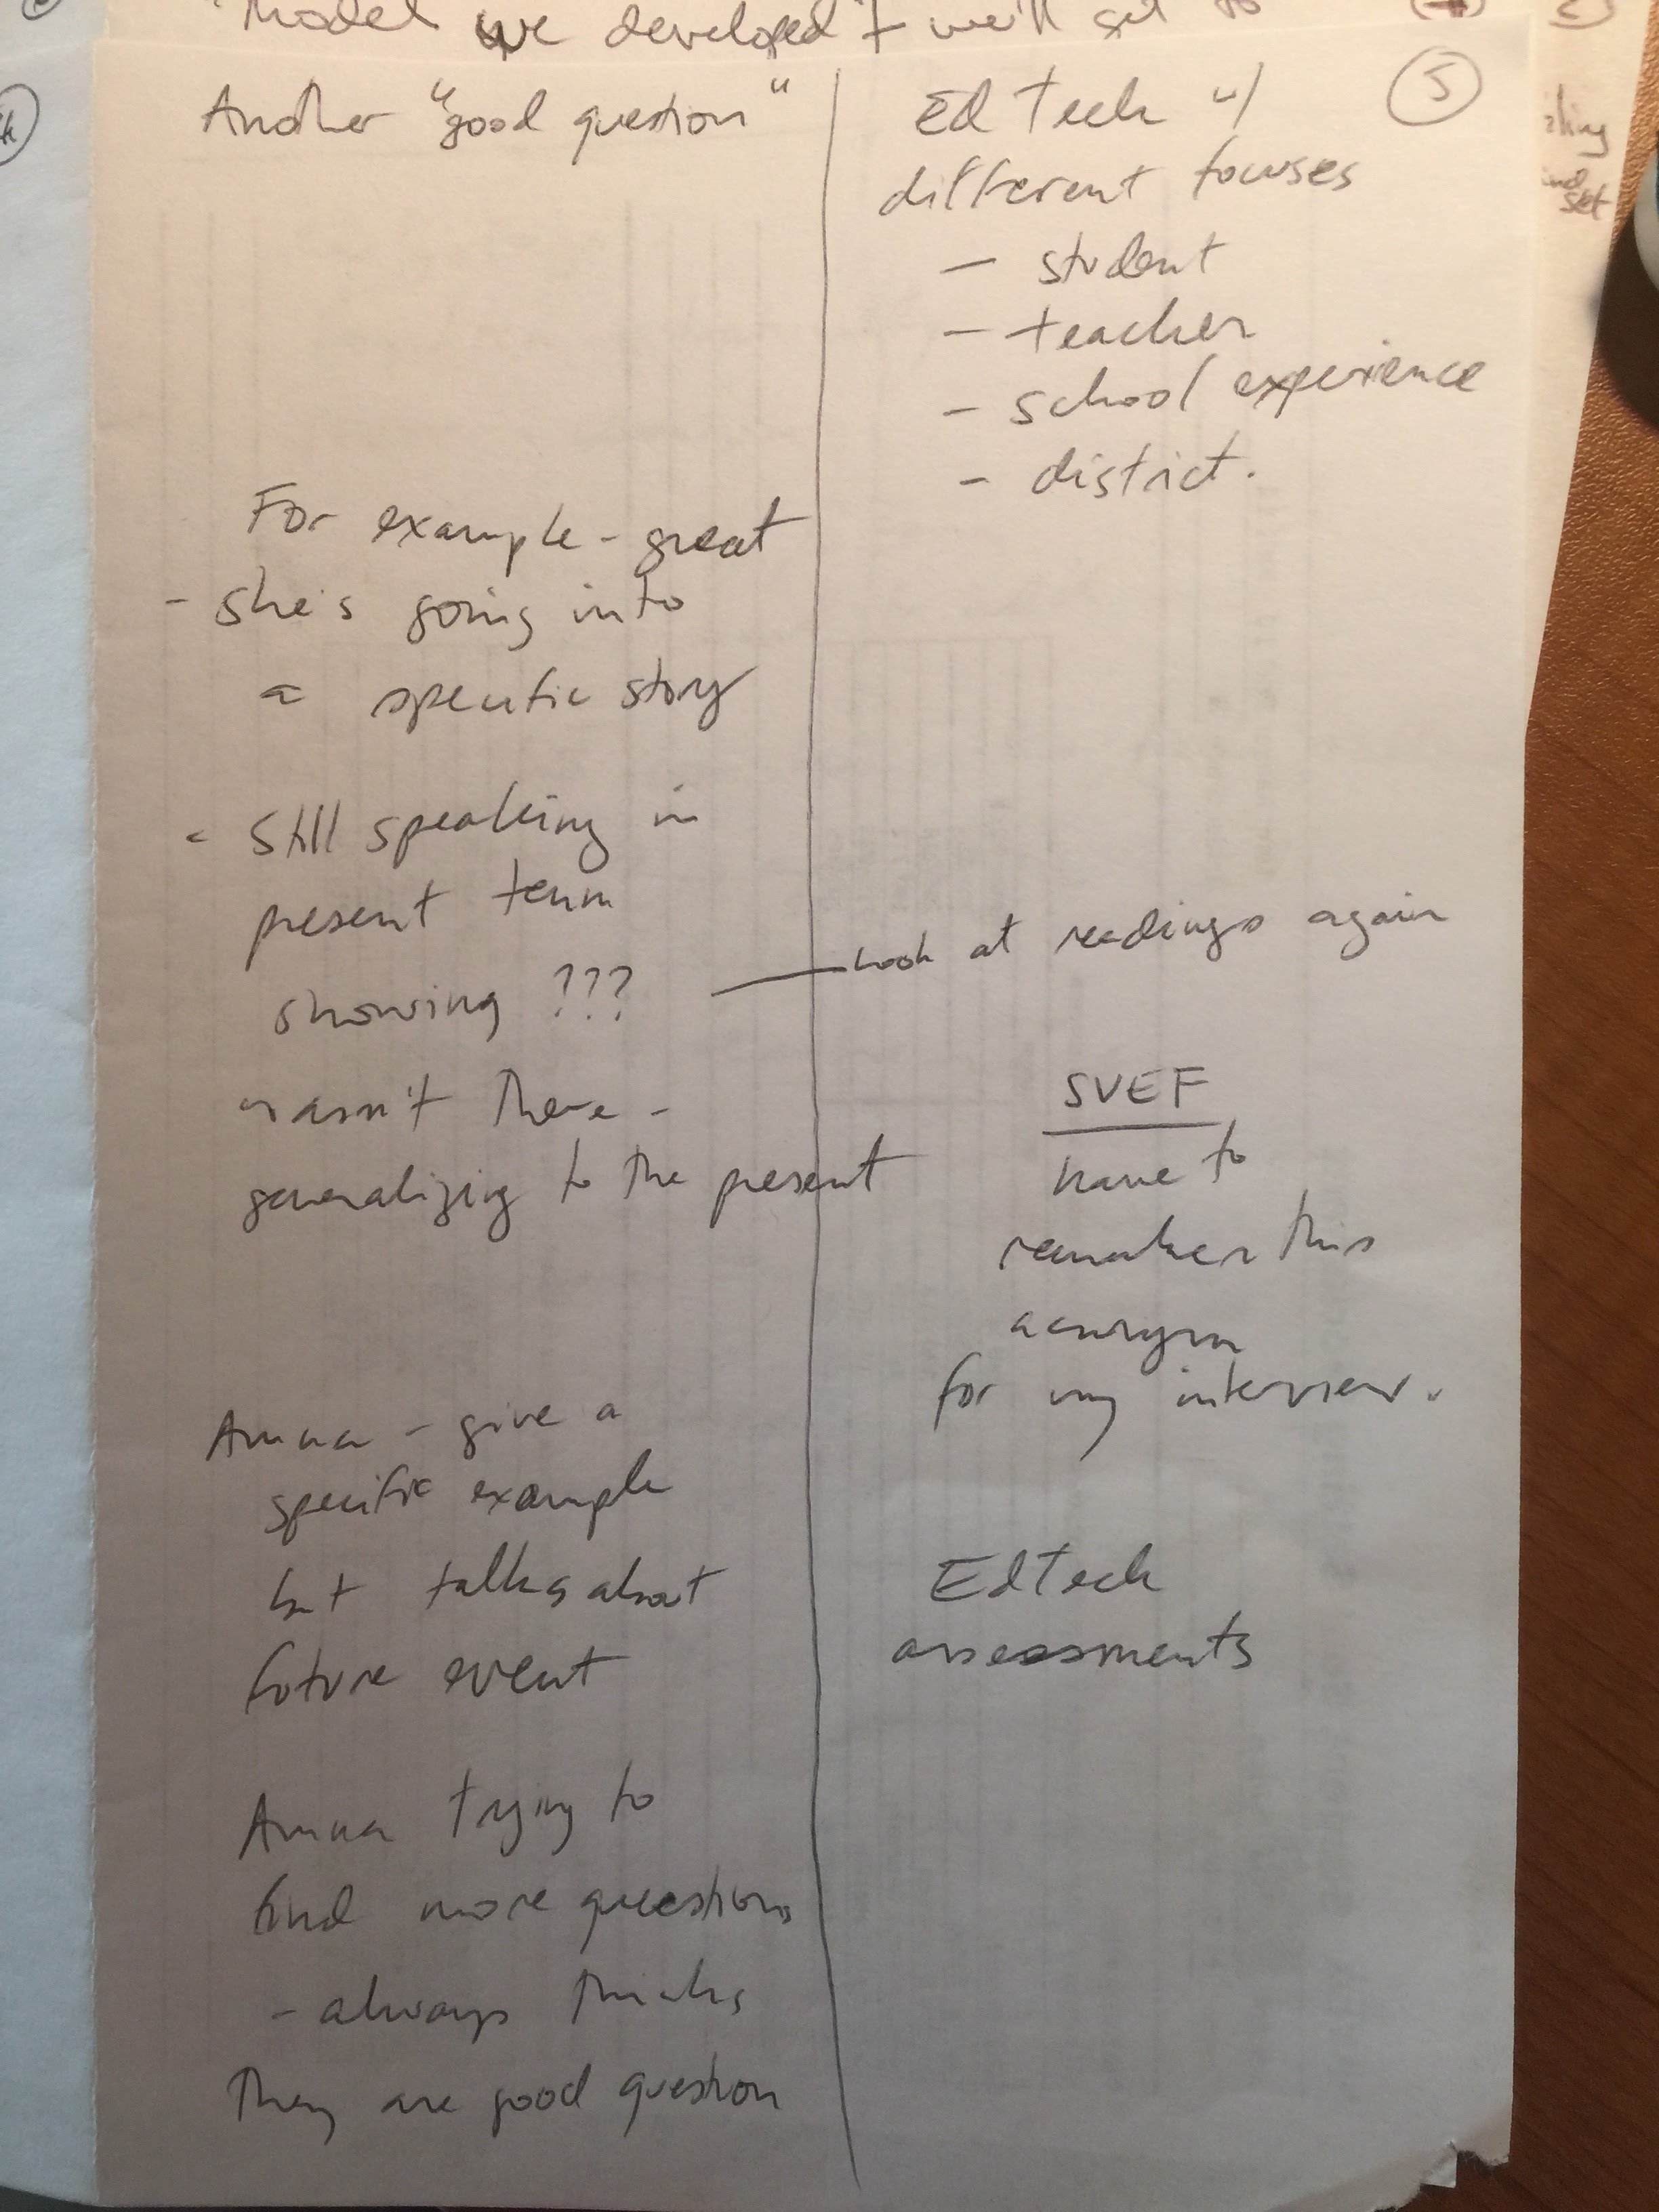 Model we developed + we'll get to
Another "good question"
For example - great
- She's going into
a specific story
- Still speaking in
present term
showing ???
wasn't there -
generalizing to the present
Amna - give a
specific example
but talks about
future event
Amna trying to
find more questions
- always thinks
they are good question
5
Ed Tech w/
different focuses
- student
- teacher
- school experience
- district.
Look at readings again
SVEF
have to
remember this
acronym
for my interview.
EdTech
assessments
set